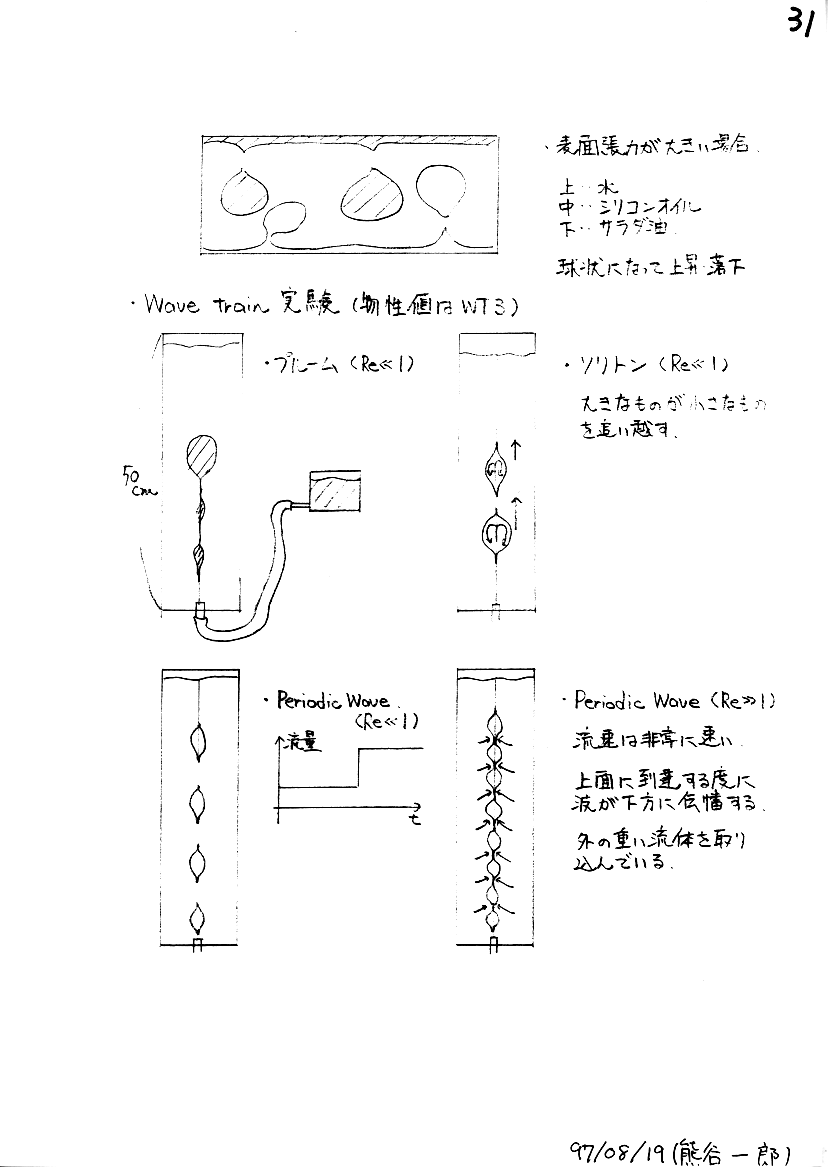 31
・表面張力が大きい場合.
上‥水
中‥シリコンオイル
下‥サラダ油.
球状になって上昇・落下
・Wave train 実験 (物性値はWT3)
・プルーム (Re≪1)
50cm
・ソリトン (Re≪1)
大きなものが小さなもの
を追い越す.
・Periodic Wave.
(Re≪1)
流量
t
・Periodic Wave (Re≫1)
流速は非常に速い.
上面に到達する度に
波が下方に伝播する.
外の重い流体を取り
込んでいる.
97/08/19(熊谷一郎)